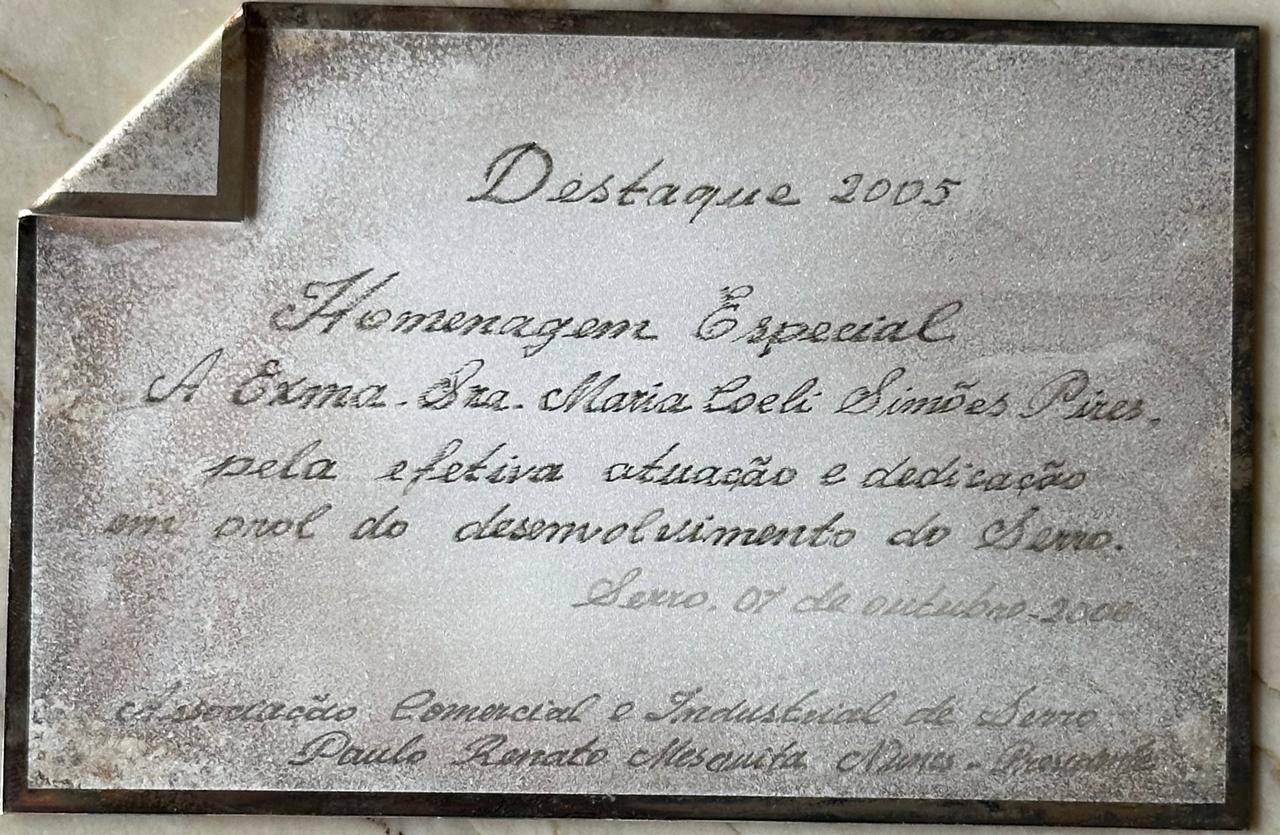 Destaque 2005
Homenagem Especial
A Exma. Sra. Maria Coeli Simões Pires,
pela efetiva atuação e dedicação
em prol do desenvolvimento do Serro.
Serro, 07 de outubro
Associação Comercial e Industrial de Serro
Paulo Renato Mesquita Nunes - Presidente